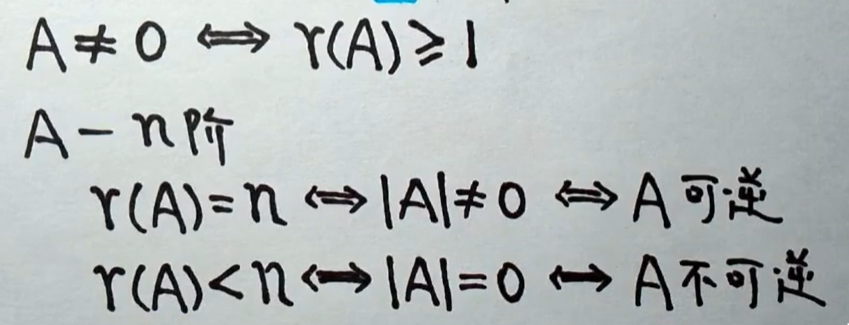 A ≠ 0 ⟺ r(A) ⩾ 1
A - n 阶
r(A) = n ⟺ |A| ≠ 0 ⟺ A 可逆
r(A) < n ⟺ |A| = 0 ⟺ A 不可逆